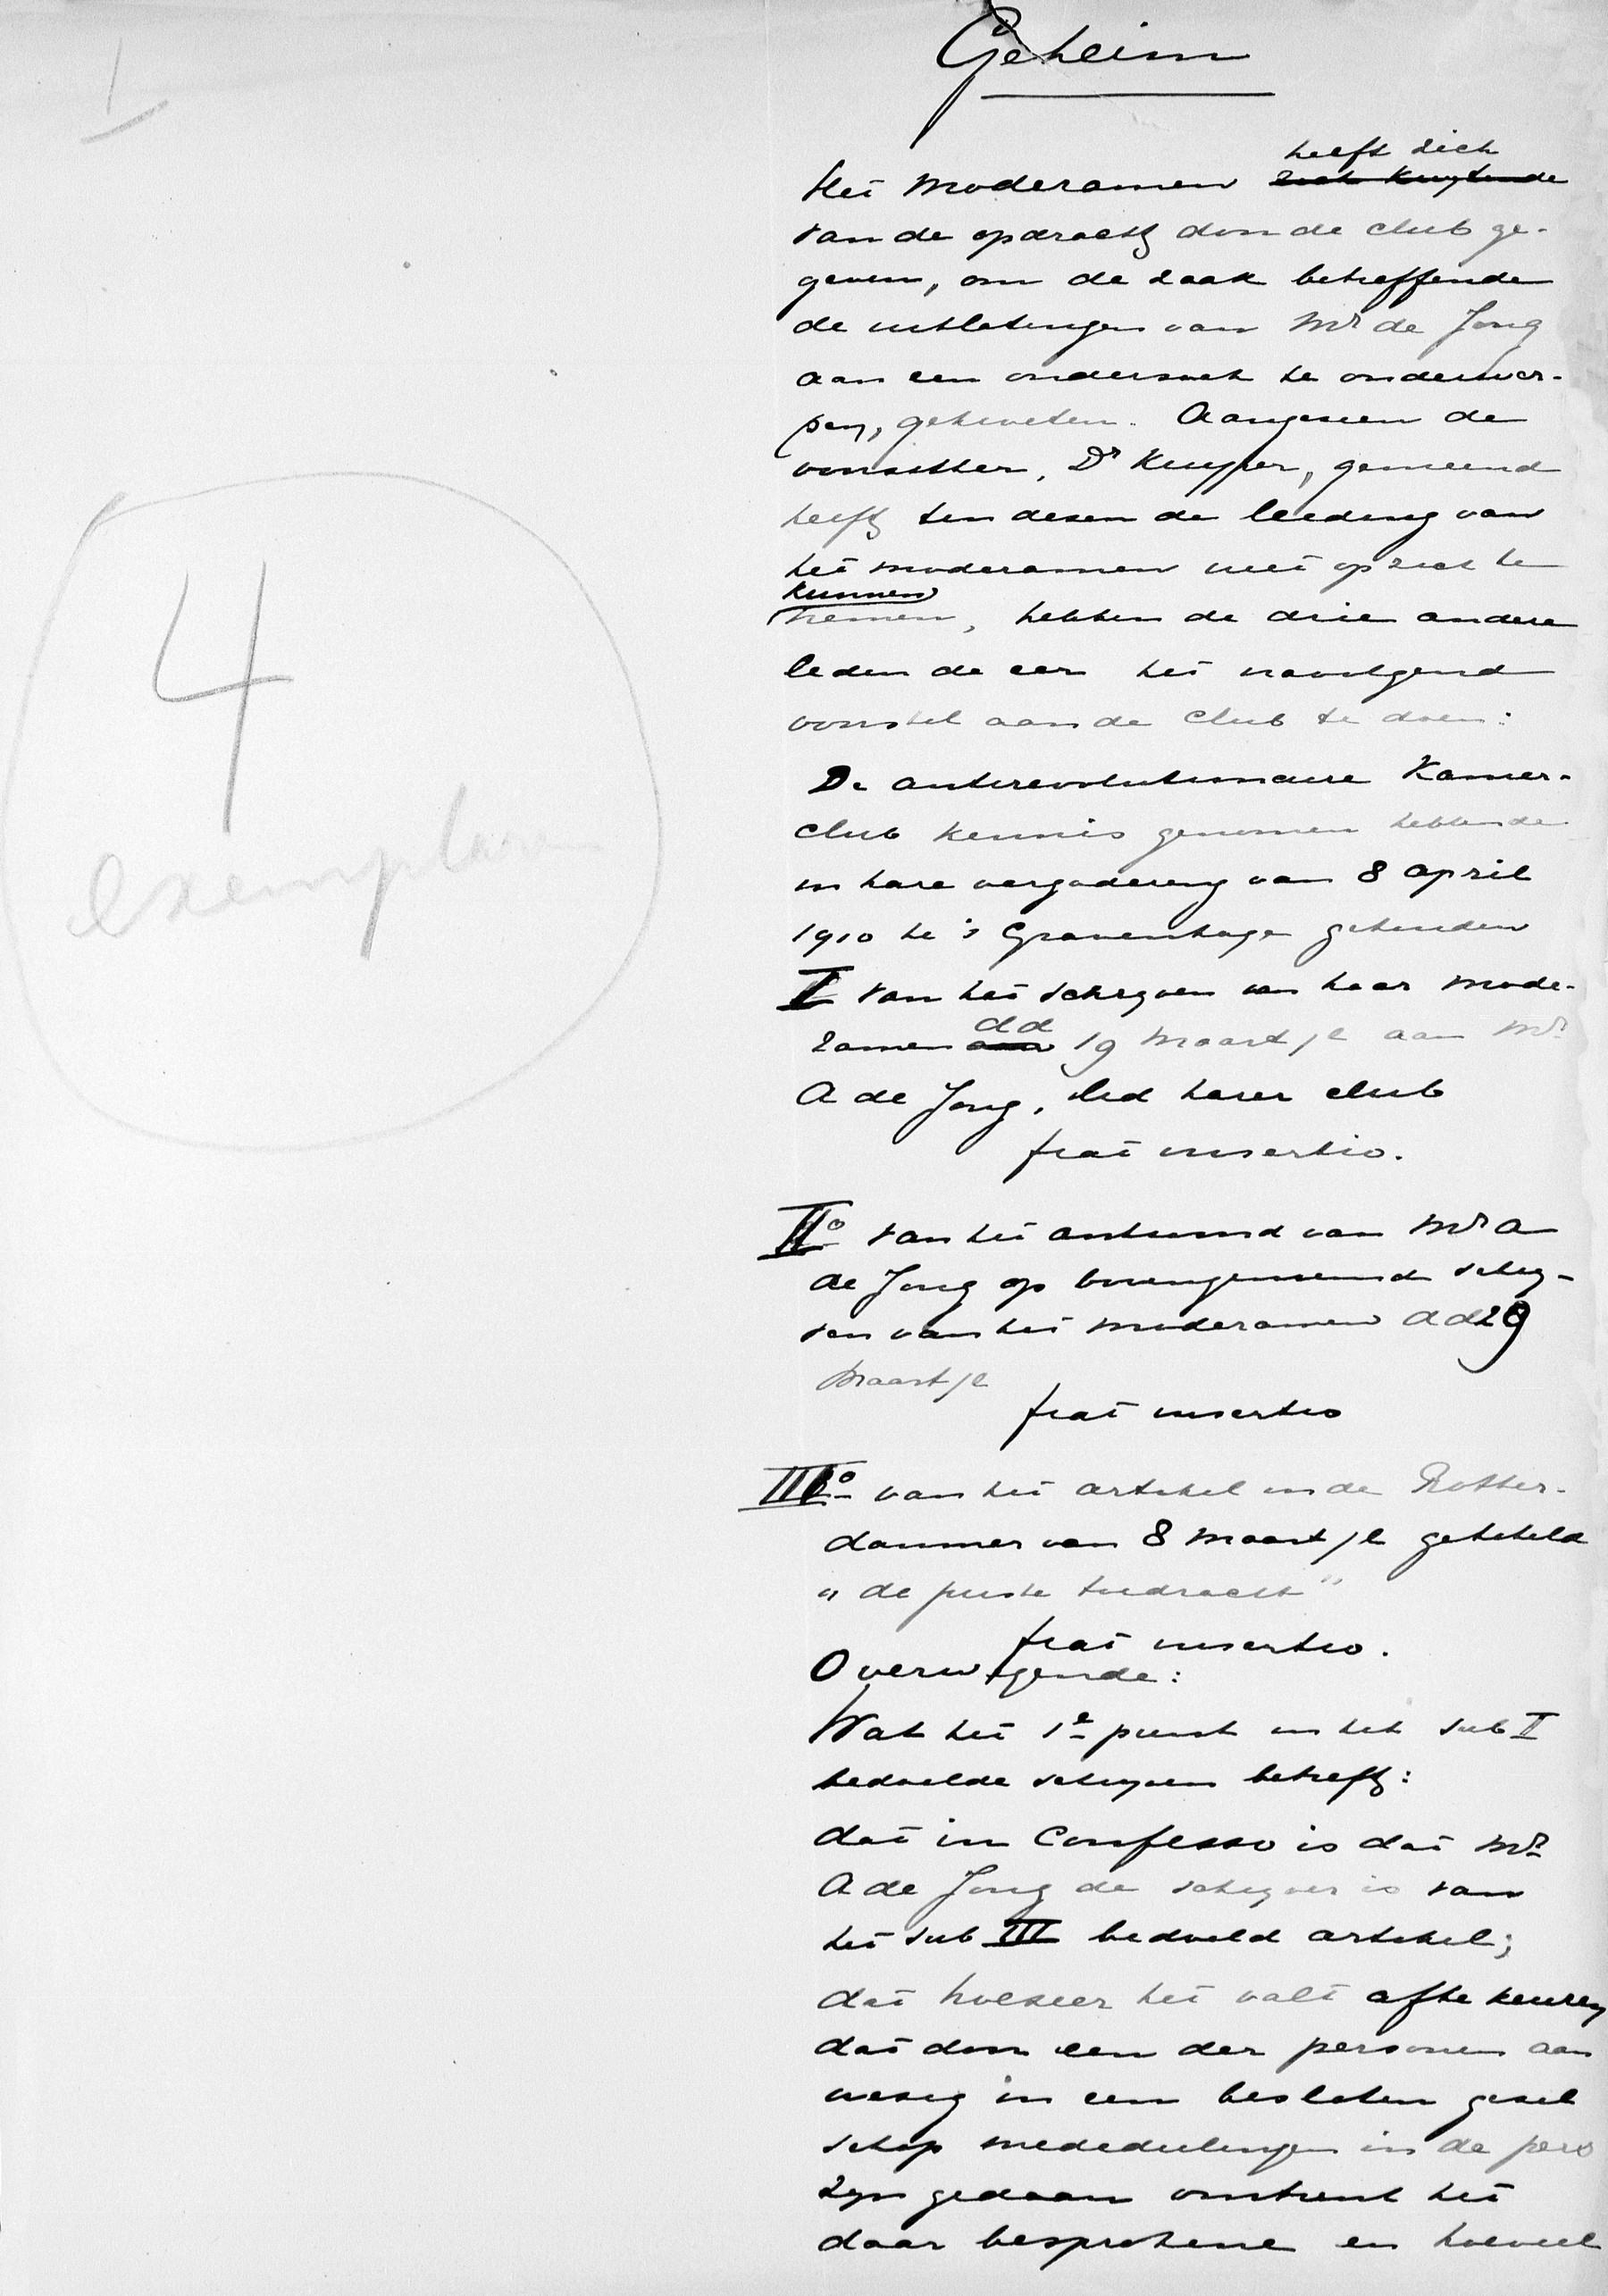 1
4
exemplaren
Geheim
heeft zich
Het Moderamen zich kwytende
van de opdracht door de club ge-
geven, om de zaak betreffende
de uitlatingen van Mr de Jong
aan een onderzoek te onderwer-
pen, gekweten. Aangezien de
voorzitter, Dr Kuyper, gemeend
heeft ten dezen de leiding van
het moderamen niet op zich te
kunnen
nemen, hebben de drie andere
leden de eer het navolgend
voorstel aan de Club te doen:
De antirevolutionaire Kamer-
club kennis genomen hebbende
in hare vergadering van 8 april
1910 te 's Gravenhage gehouden
I van het schryven van haar mode-
ramen dd 19 Maart jl aan Mr
A de Jong, lid harer club
fiat insertio.
IIo van het antwoord van Mr A
de Jong op bovengenoemd schry-
ven van het moderamen dd 29
Maart jl
fiat insertio
IIIo van het artikel in de Rotter-
dammer van 8 Maart jl getiteld
„de juiste toedracht"
fiat insertio.
Overwegende:
Wat het 1e punt in het sub I
bedoelde schryven betreft:
dat in Confesso is dat Mr
A de Jong de schryver is van
het sub III bedoeld artikel;
dat hoezeer het valt af te keuren
dat door een der personen aan
wezig in een besloten gezel
schap mededeelingen in de pers
zyn gedaan omtrent het
daar besprokene en hoeveel